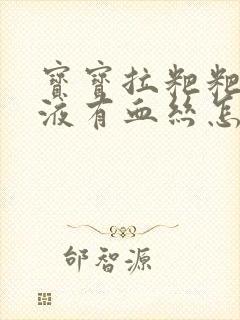 寶寶拉粑粑
液有血絲怎
邰智源